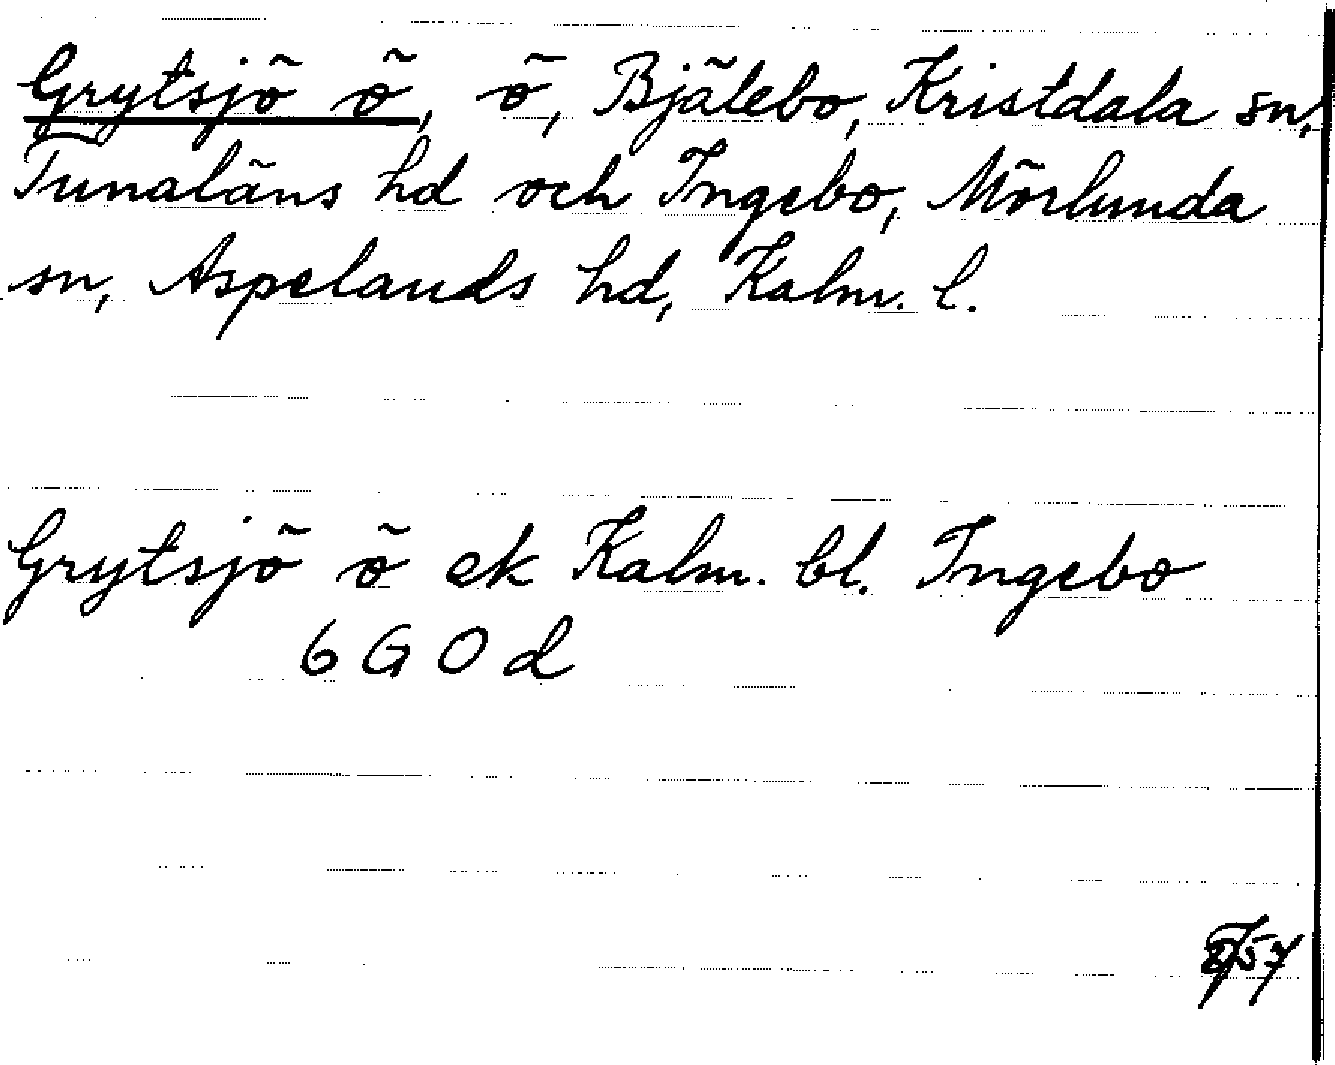 Grytsjö ö, ö, Bjälebo, Kristdala sn,
Tunaläns hd och Ingebo, Mörlunda
sn, Aspelands hd, Kalm. l.
Grytsjö ö ek Kalm. bl. Ingebo
6 G O d
57